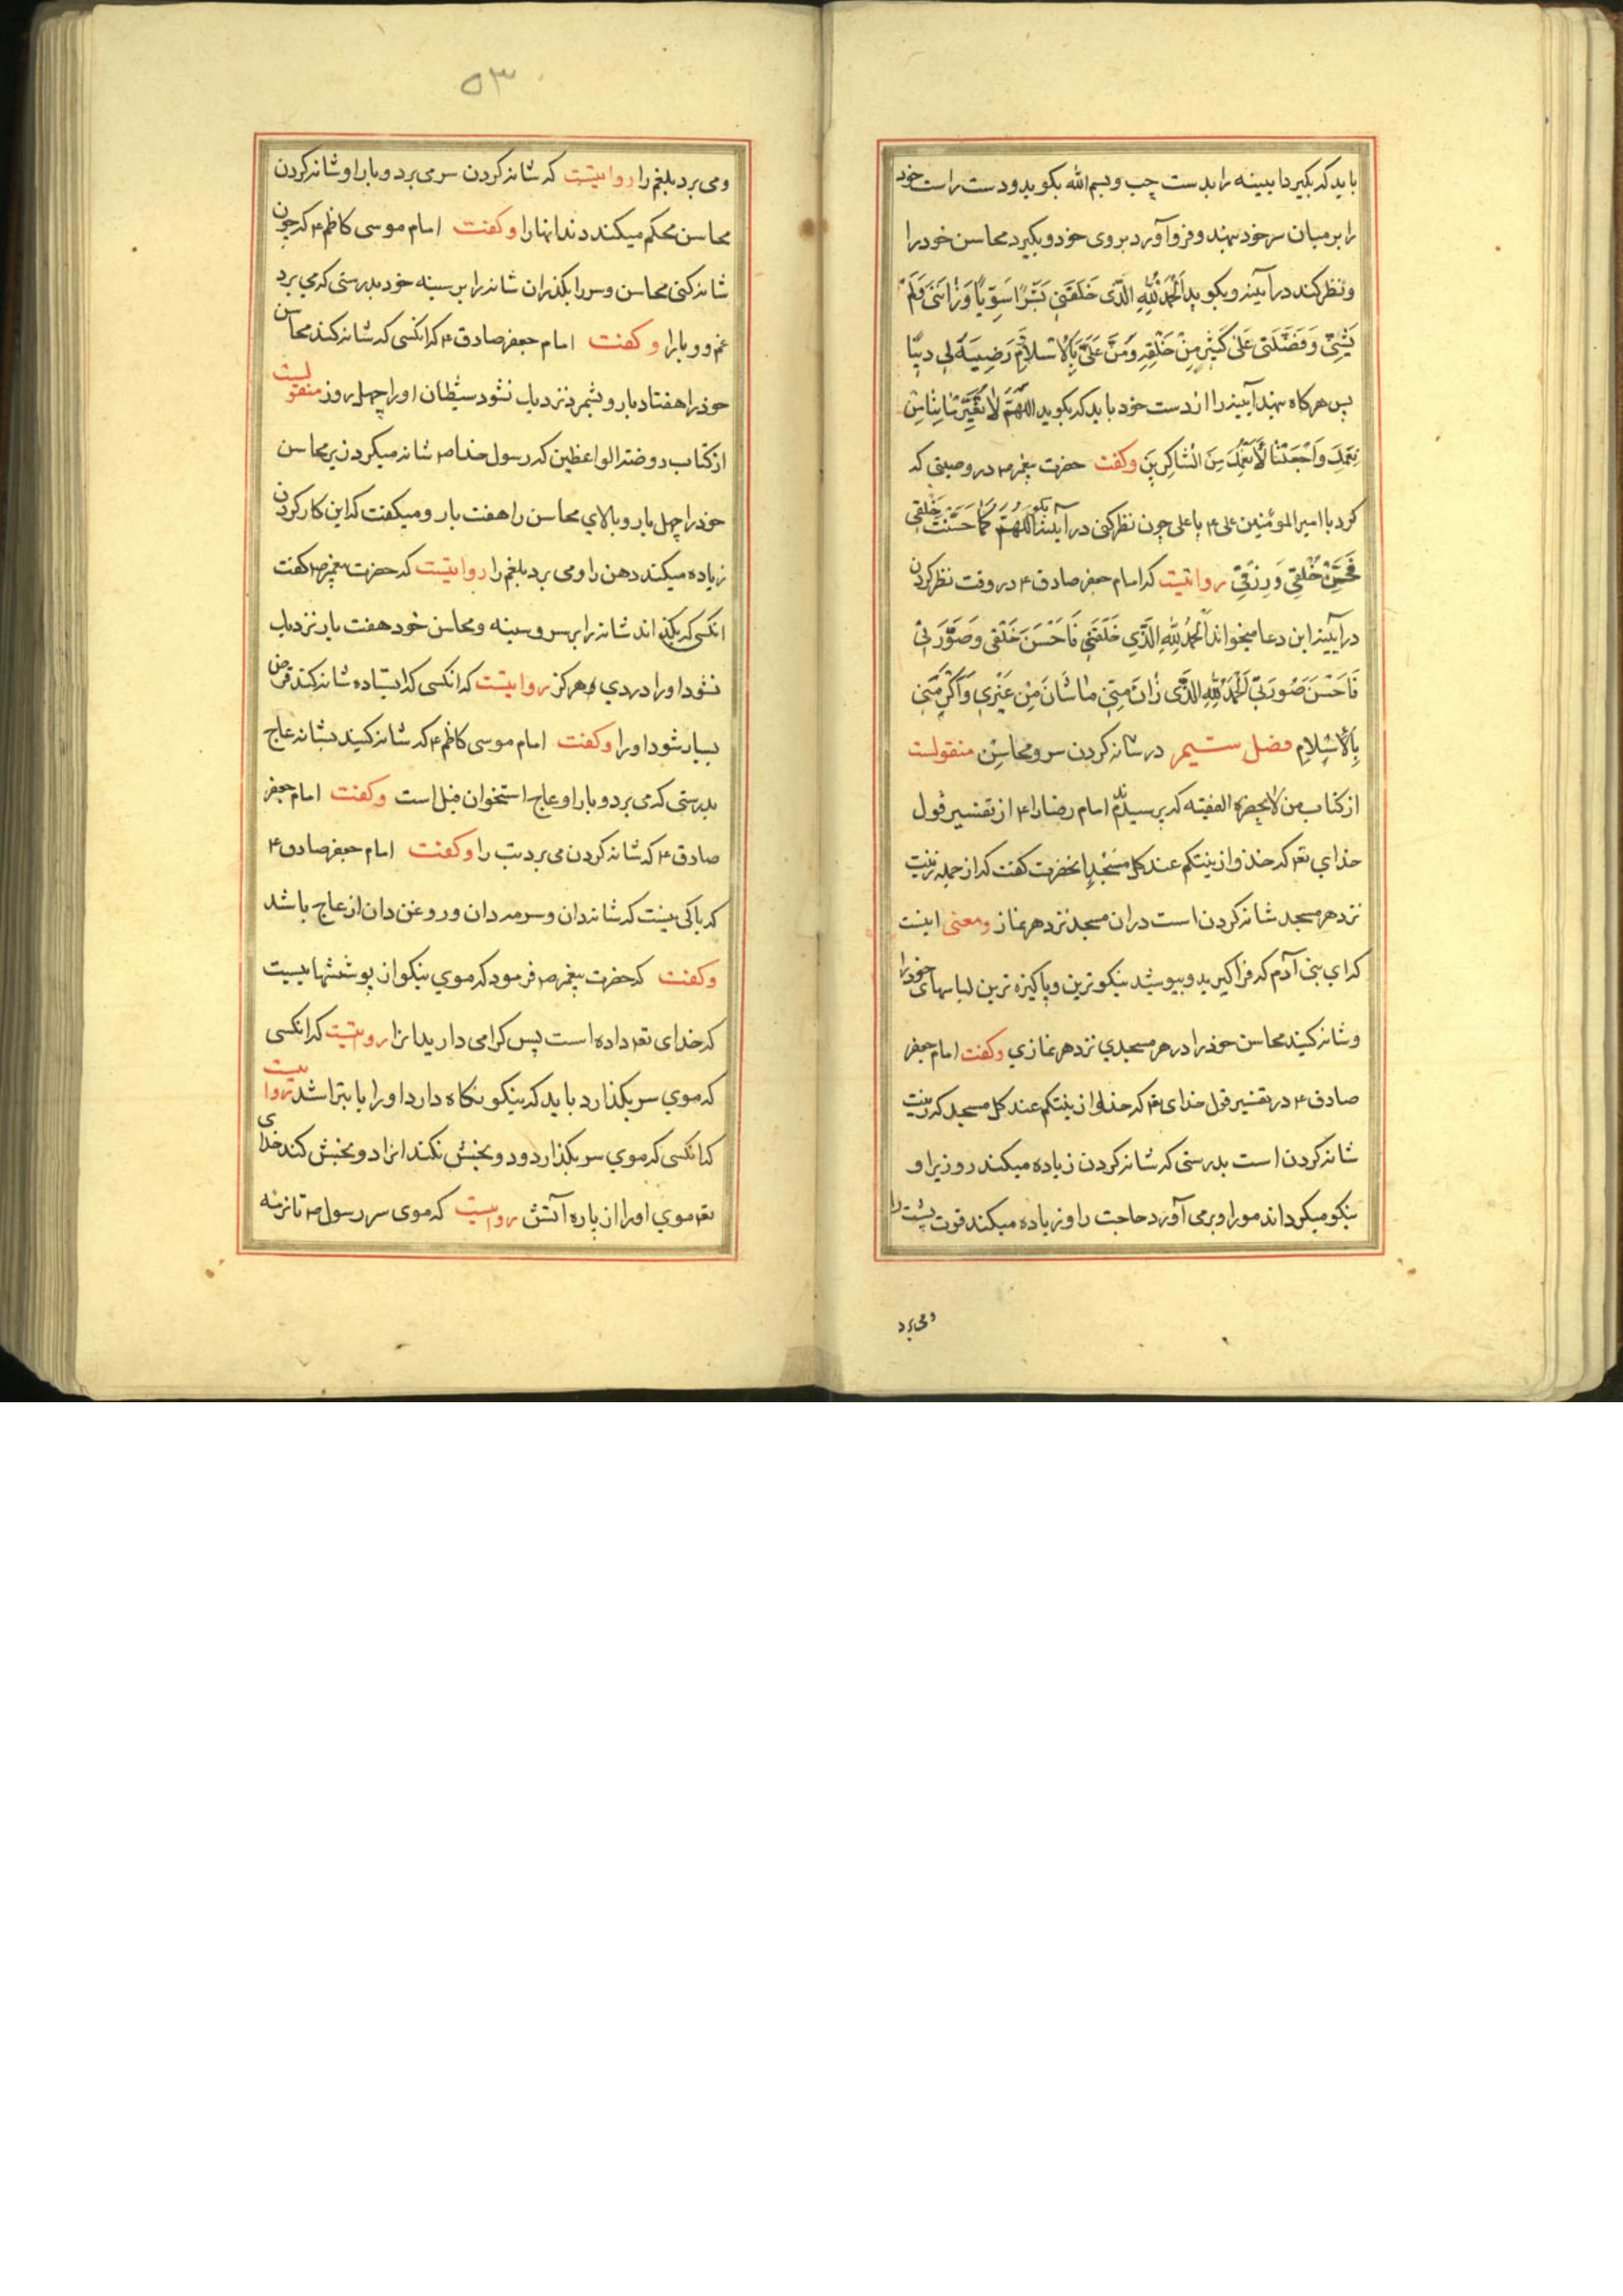 باید که بگیرد ایینه را بدست چپ و بسم الله بکوید و دست راست خود
را بر میان سر خود نهند و فرو آورد بروی خود و بکیرد محاسن خود را
و نظر کند در آیینه و بکوید اَلْحَمْدُ لِلّٰهِ الَّذی خَلَقَنِی بَشَرًا سَوِیًّا وَزٰانَنی وَلَمْ
یَشِنِّی وَ فَضَّلَنی عَلیٰ کَثیرٍ مِنْ خَلْقِهِ وَمَنَّ عَلَیَّ بِالْاِسْلاٰمِ رَضِیَهُ لی دینًا
پس هر کاه نهند آیینه را از دست خود باید که بکوید اللّهُمَّ لاٰ تُغَیِّرْ مٰا بِنٰا مِنْ
نِعَمِکَ وَاجْعَلْنٰا لِاَنْعُمِکَ مِنَ الشّٰاکِرینَ وکفت حضرت پیغمبر ص در وصیتی که
کرد با امیر المؤمنین علی ع یا علی چون نظر کنی در آیینه بکو اَللّهُمَّ کَمٰا حَسَّنْتَ خَلْقی
فَحَسِّنْ خُلْقی وَ رِزْقی روایتست که امام جعفر صادق ع در وقت نظر کردن
در آیینه این دعا میخواند اَلْحَمْدُ لِلّٰهِ الَّذی خَلَقَنی فَاَحْسَنَ خَلْقی وَ صَوَّرَنی
فَاَحْسَنَ صُورَتی اَلْحَمْدُ لِلّٰهِ الَّذی زٰانَ مِنّی مٰا شٰانَ مِنْ غَیْری وَ اَکْرَمَنی
بِالْاِسْلاٰمِ فصل ششم در شانه کردن سر و محاسن منقولست
از کتاب من لا یحضره الفقیه که پرسیدند امام رضا را ع از تفسیر قول
خدای تعه که خذوا زینتکم عند کل مسجد انحضرت کفت که از جمله زینت
نزد هر مسجد شانه کردن است دران مسجد نزد هر نماز ومعنی اینست
که ای بنی آدم که فرا کیرید و بپوشید نیکوترین و پاکیزه ترین لباسهای خود را
و شانه کنید محاسن خود را در هر مسجدی نزد هر نمازی وکفت امام جعفر
صادق ع در تفسیر قول خدای تعه که خذوا زینتکم عند کل مسجد که زینت
شانه کردن است بدرستی که شانه کردن زیاده میکند روزی را و
نیکو میکرداند مو را و بر می آورد حاجت را و زیاده میکند قوت پشت را
و می برد
۵۳
و می برد بلغم را روایتست که شانه کردن سر می برد و با را و شانه کردن
محاسن محکم میکند دندانها را وکفت امام موسی کاظم ع که چون
شانه کنی محاسن و سر را بکذران شانه را بر سینه خود بدرستی که می برد
غم و وبا را وکفت امام جعفر صادق ع که انکسی که شانه کند محاسن
خود را هفتاد بار و بشمرد نزدیک نشود شیطان او را چهل روز منقولست
از کتاب روضة الواعظین که رسول خدا ص شانه میکرد زیر محاسن
خود را چهل بار و بالای محاسن را هفت بار و میکفت که این کار کردن
زیاده میکند دهن را و می برد بلغم را روایتست که حضرت پیغمبر ص کفت
انکسی که بکذراند شانه را بر سر و سینه و محاسن خود هفت بار نزدیک
نشود او را دردی هرکز روایتست که انکسی که ایستاده شانه کند قرض
بسیار شود او را وکفت امام موسی کاظم ع که شانه کنید بشانه عاج
بدرستی که می برد وبا را و عاج استخوان فیل است وکفت امام جعفر
صادق ع که شانه کردن می برد تب را وکفت امام جعفر صادق ع
که باکی نیست که شانه دان و سرمه دان و روغن دان از عاج باشد
وکفت که حضرت پیغمبر ص فرمود که موی نیکو از پوششهاییست
که خدای تعه داده است پس کرامی دارید انرا روایتست که انکسی
که موی سر بکذارد باید که نیکو نکاه دارد او را یا بتراشد روایتست
که انکسی که موی سر بکذارد و دو بخش نکند انرا دو بخش کند خدای
تعه موی او را از پاره آتش روایتست که موی سر رسول ص تا نرمه